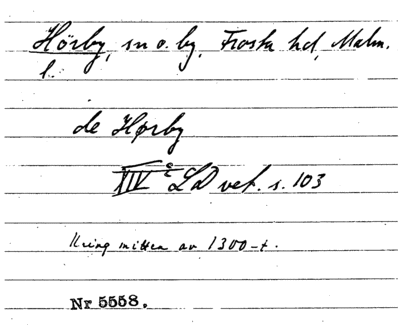 Hörby, sn o. by, Frosta hd, Malm.
l.
de Hørby
XIV e LD vet. s. 103
Kring mitten av 1300-t.
Nr 5558.